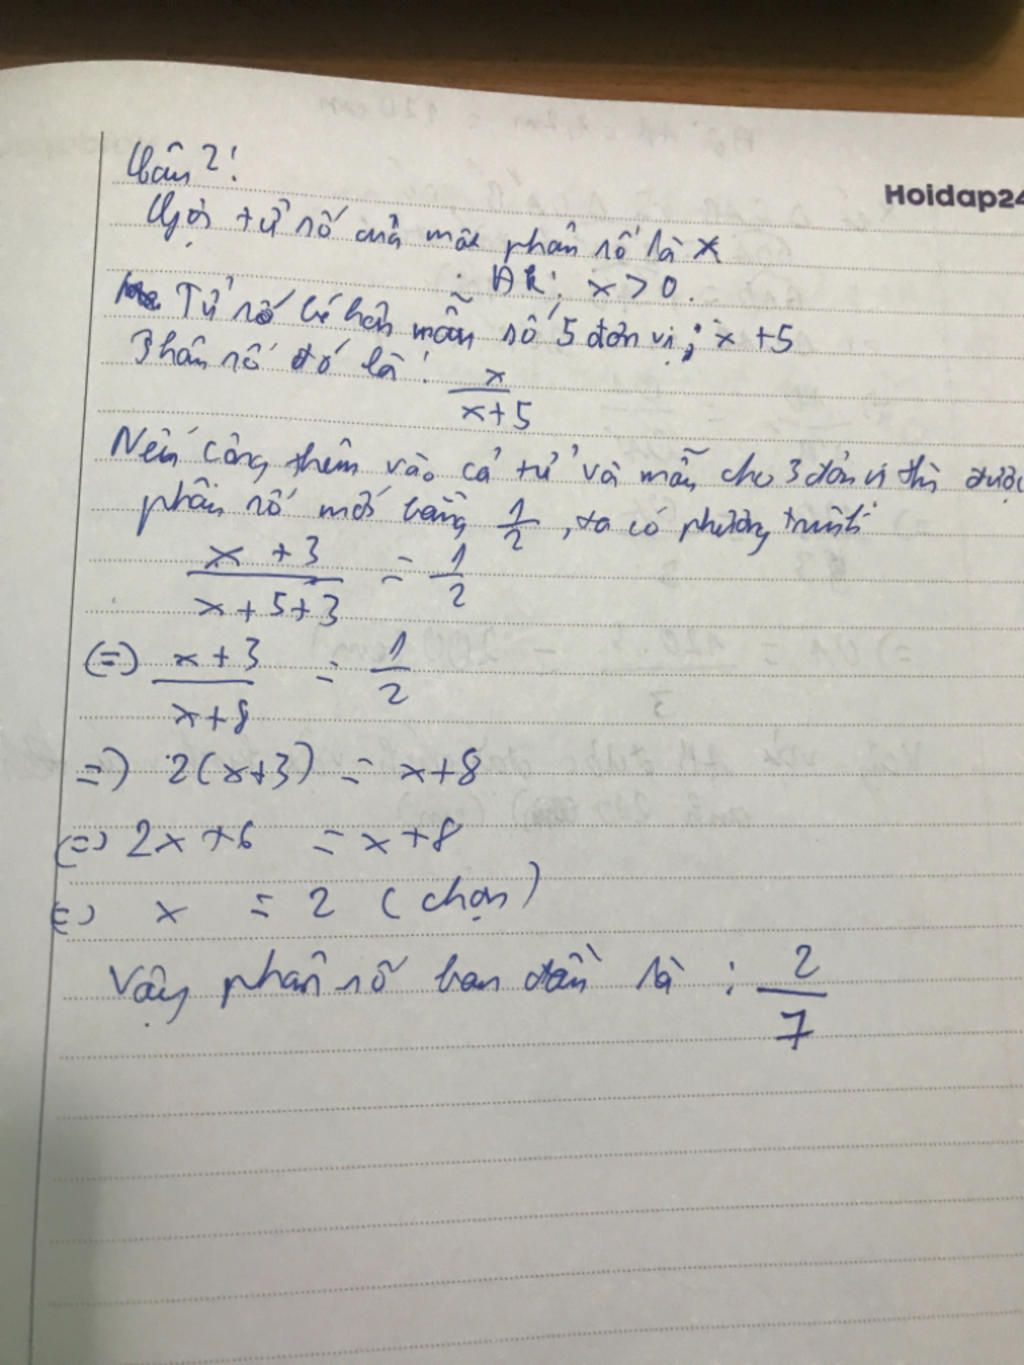 Câu 2:
Hoidap24
Gọi tử số của một phân số là x
ĐK: x > 0.
Tử số bé hơn mẫu số 5 đơn vị: x + 5
Phân số đó là: x/(x+5)
Nếu cộng thêm vào cả tử và mẫu cho 3 đơn vị thì được
phân số mới bằng 1/2, ta có phương trình
(x + 3)/(x + 5 + 3) = 1/2
(=) (x + 3)/(x + 8) = 1/2
=) 2(x+3) = x+8
(=) 2x + 6 = x + 8
(=) x = 2 (chọn)
Vậy phân số ban đầu là : 2/7